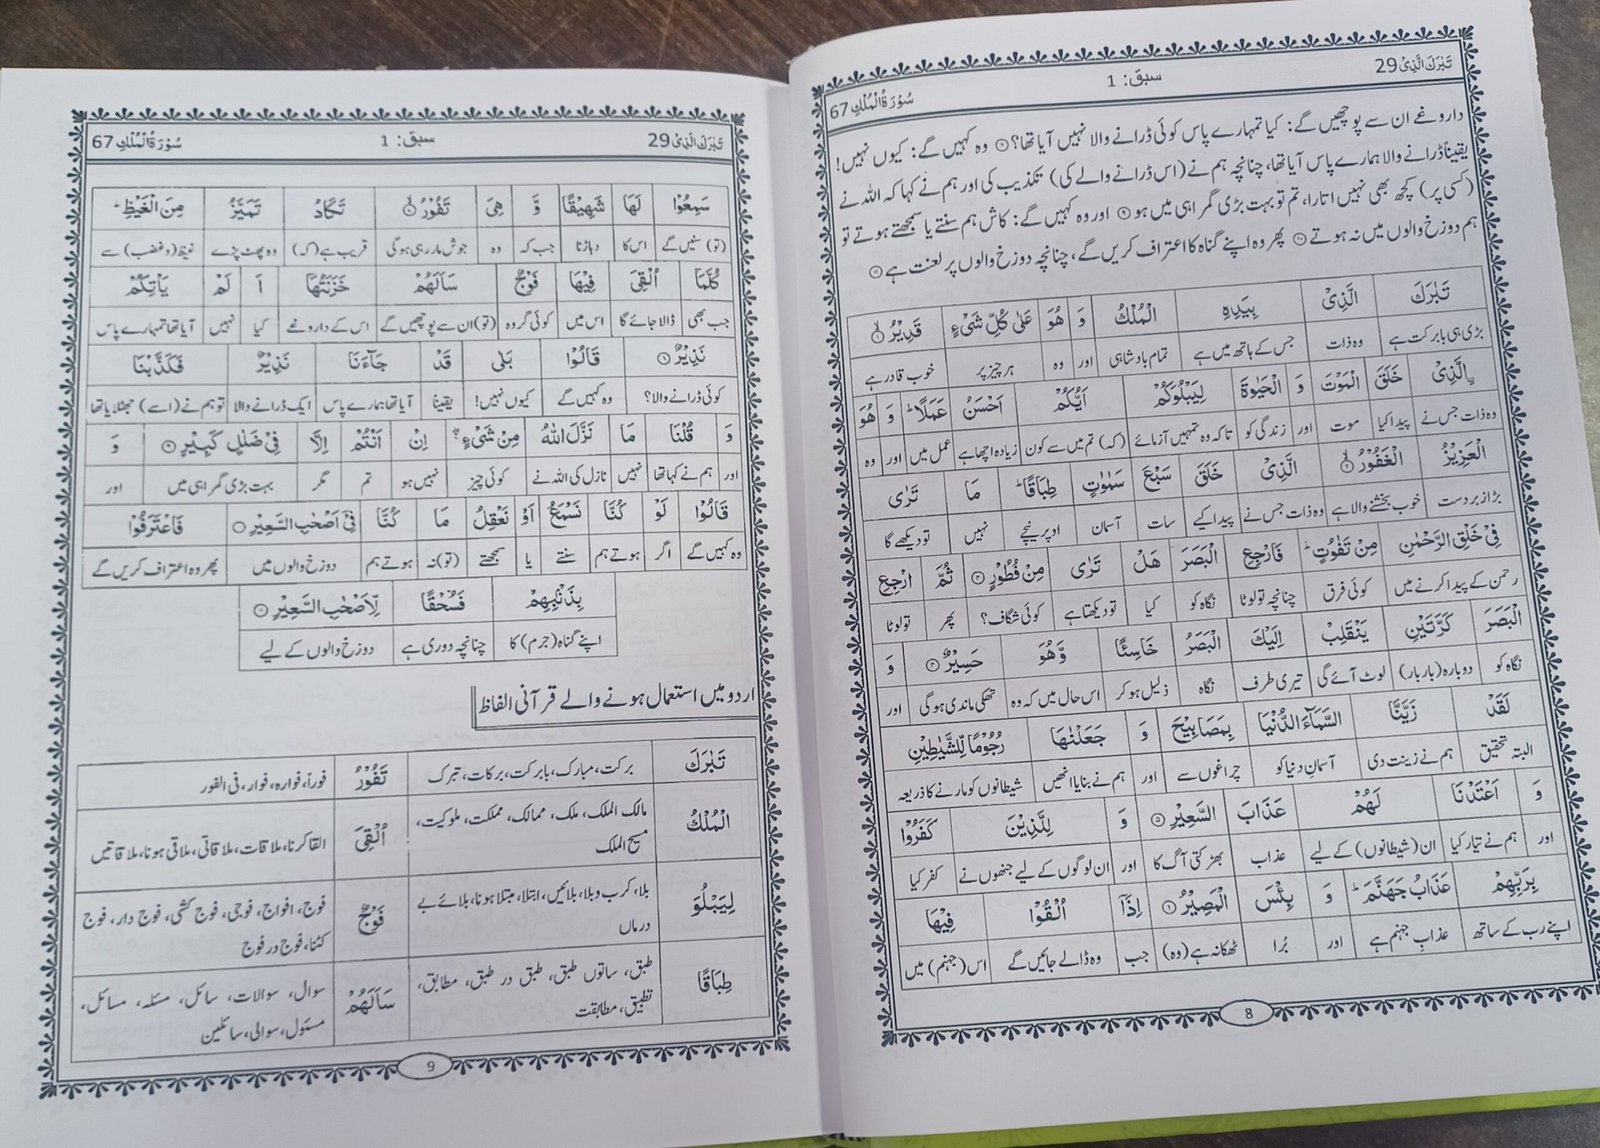 تَبٰرَكَ الَّذِیْ 29 سبق: 1 سُوْرَةُ الْمُلْكِ 67
داروغے ان سے پوچھیں گے: کیا تمہارے پاس کوئی ڈرانے والا نہیں آیا تھا؟ ۝۸ وہ کہیں گے: کیوں نہیں!
یقیناً ڈرانے والا ہمارے پاس آیا تھا، چنانچہ ہم نے (اس ڈرانے والے کی) تکذیب کی اور ہم نے کہا کہ اللہ نے
(کسی پر) کچھ بھی نہیں اتارا، تم تو بہت بڑی گمراہی میں ہو ۝۹ اور وہ کہیں گے: کاش ہم سنتے یا سمجھتے ہوتے تو
ہم دوزخ والوں میں نہ ہوتے ۝۱۰ پھر وہ اپنے گناہ کا اعتراف کریں گے، چنانچہ دوزخ والوں پر لعنت ہے ۝۱۱
تَبٰرَكَ الَّذِیْ بِیَدِهِ الْمُلْكُ وَ هُوَ عَلٰی كُلِّ شَیْءٍ قَدِیْرُ ۝۱
بڑی ہی بابرکت ہے وہ ذات جس کے ہاتھ میں ہے تمام بادشاہی اور وہ ہر چیز پر خوب قادر ہے
الَّذِیْ خَلَقَ الْمَوْتَ وَ الْحَیٰوةَ لِیَبْلُوَكُمْ اَیُّكُمْ اَحْسَنُ عَمَلًا ؕ وَ هُوَ
وہ ذات جس نے پیدا کیا موت اور زندگی کو تاکہ وہ تمہیں آزمائے (کہ) تم میں سے کون زیادہ اچھا ہے عمل میں اور وہ
الْعَزِیْزُ الْغَفُوْرُ ۝۲ الَّذِیْ خَلَقَ سَبْعَ سَمٰوٰتٍ طِبَاقًا ؕ مَا تَرٰی
بڑا زبردست خوب بخشنے والا ہے وہ ذات جس نے پیدا کیے سات آسمان اوپر نیچے نہیں تو دیکھے گا
فِیْ خَلْقِ الرَّحْمٰنِ مِنْ تَفٰوُتٍ ؕ فَارْجِعِ الْبَصَرَ هَلْ تَرٰی مِنْ فُطُوْرٍ ۝۳ ثُمَّ ارْجِعِ
رحمن کے پیدا کرنے میں کوئی فرق چنانچہ تو لوٹا نگاہ کو کیا تو دیکھتا ہے کوئی شگاف؟ پھر تو لوٹا
الْبَصَرَ كَرَّتَیْنِ یَنْقَلِبْ اِلَیْكَ الْبَصَرُ خَاسِئًا وَّهُوَ حَسِیْرٌ ۝۴ وَ
نگاہ کو دوبارہ (بار بار) لوٹ آئے گی تیری طرف نگاہ ذلیل ہو کر اس حال میں کہ وہ تھکی ماندی ہوگی اور
لَقَدْ زَیَّنَّا السَّمَآءَ الدُّنْیَا بِمَصَابِیْحَ وَ جَعَلْنٰهَا رُجُوْمًا لِّلشَّیٰطِیْنِ
البتہ تحقیق ہم نے زینت دی آسمانِ دنیا کو چراغوں سے اور ہم نے بنایا انھیں شیطانوں کو مارنے کا ذریعہ
وَ اَعْتَدْنَا لَهُمْ عَذَابَ السَّعِیْرِ ۝۵ وَ لِلَّذِیْنَ كَفَرُوْا
اور ہم نے تیار کیا ان (شیطانوں) کے لیے عذاب بھڑکتی آگ کا اور ان لوگوں کے لیے جنھوں نے کفر کیا
بِرَبِّهِمْ عَذَابُ جَهَنَّمَ ؕ وَ بِئْسَ الْمَصِیْرُ ۝۶ اِذَاۤ اُلْقُوْا فِیْهَا
اپنے رب کے ساتھ عذابِ جہنم ہے اور بُرا ٹھکانہ ہے (وہ) جب وہ ڈالے جائیں گے اس (جہنم) میں
8
تَبٰرَكَ الَّذِیْ 29 سبق: 1 سُوْرَةُ الْمُلْكِ 67
سَمِعُوْا لَهَا شَهِیْقًا وَّ هِیَ تَفُوْرُ ۝۷ تَكَادُ تَمَیَّزُ مِنَ الْغَیْظِ ؕ
(تو) سنیں گے اس کا دہاڑنا جب کہ وہ جوش مار رہی ہوگی قریب ہے (کہ) وہ پھٹ پڑے غیظ (و غضب) سے
كُلَّمَاۤ اُلْقِیَ فِیْهَا فَوْجٌ سَاَلَهُمْ خَزَنَتُهَاۤ اَ لَمْ یَاْتِكُمْ
جب بھی ڈالا جائے گا اس میں کوئی گروہ (تو) ان سے پوچھیں گے اس کے داروغے کیا نہیں آیا تھا تمہارے پاس
نَذِیْرٌ ۝۸ قَالُوْا بَلٰی قَدْ جَآءَنَا نَذِیْرٌ فَكَذَّبْنَا
کوئی ڈرانے والا؟ وہ کہیں گے کیوں نہیں! یقیناً آیا تھا ہمارے پاس ایک ڈرانے والا تو ہم نے (اسے) جھٹلایا تھا
وَ قُلْنَا مَا نَزَّلَ اللّٰهُ مِنْ شَیْءٍ ۖ اِنْ اَنْتُمْ اِلَّا فِیْ ضَلٰلٍ كَبِیْرٍ ۝۹ وَ
اور ہم نے کہا تھا نہیں نازل کی اللہ نے کوئی چیز نہیں ہو تم مگر بہت بڑی گمراہی میں اور
قَالُوْا لَوْ كُنَّا نَسْمَعُ اَوْ نَعْقِلُ مَا كُنَّا فِیْۤ اَصْحٰبِ السَّعِیْرِ ۝۱۰ فَاعْتَرَفُوْا
وہ کہیں گے اگر ہوتے ہم سنتے یا سمجھتے (تو) نہ ہوتے ہم دوزخ والوں میں پھر وہ اعتراف کریں گے
بِذَنْۢبِهِمْ فَسُحْقًا لِّاَصْحٰبِ السَّعِیْرِ ۝۱۱
اپنے گناہ (جرم) کا چنانچہ دوری ہے دوزخ والوں کے لیے
اردو میں استعمال ہونے والے قرآنی الفاظ
تَبٰرَكَ برکت، مبارک، بابرکت، برکات، تبرک تَفُوْرُ فوراً، فوارہ، فوار، فی الفور
الْمُلْكُ مالک الملک، ملک، ممالک، مملکت، ملوکیت، مسیح الملک اُلْقِیَ القا کرنا، ملاقات، ملاقاتی، ملاقی ہونا، ملاقاتیں
لِیَبْلُوَ بلا، کرب و بلا، بلائیں، ابتلا، مبتلا ہونا، بلائے بے درماں فَوْجٌ فوج، افواج، فوجی، فوج کشی، فوج دار، فوج کننا، فوج در فوج
طِبَاقًا طبق، ساتوں طبق، طبق در طبق، مطابق، تطبیق، مطابقت سَاَلَهُمْ سوال، سوالات، سائل، مسئلہ، مسائل، مسئول، سوالی، سائلین
9